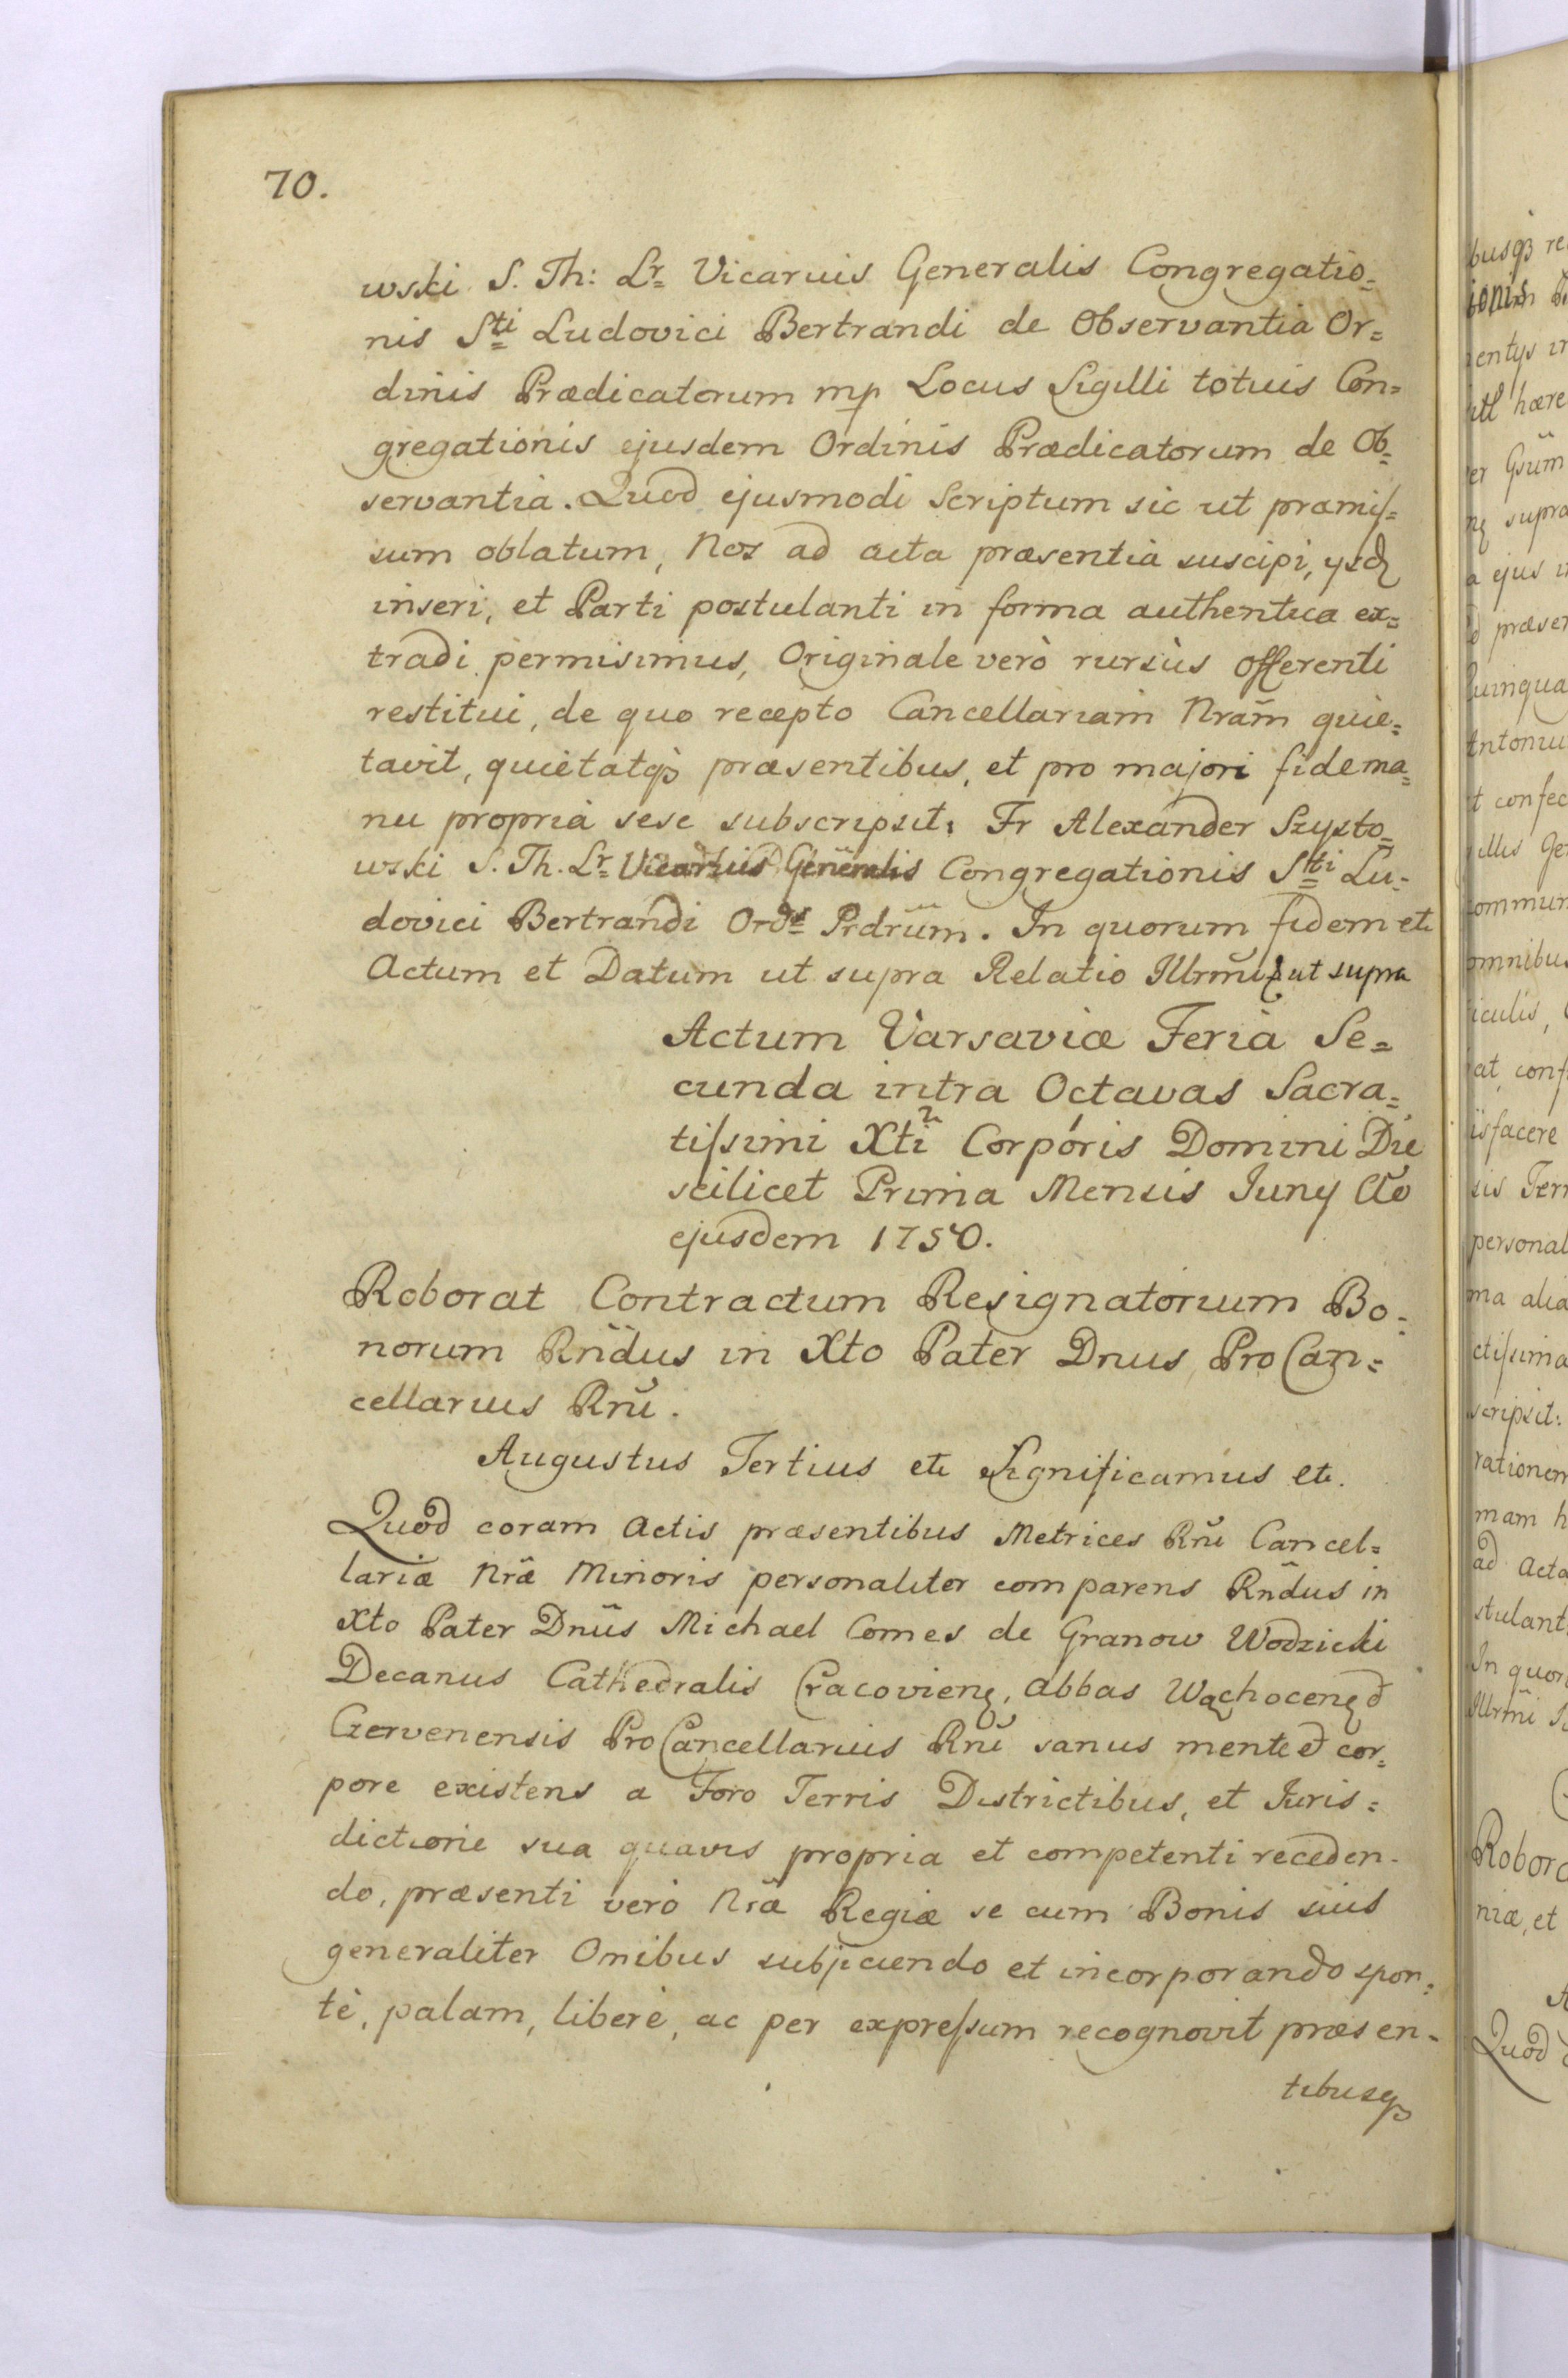 70.
wski S. Th: Lr= Vicarius Generalis Congregatio=
nis Sti Ludovici Bertrandi de Observantia Or=
dinis Prædicatorum mp Locus Sigilli totius Con=
gregationis ejusdem Ordinis Prædicatorum de Ob=
servantia. Quod ejusmodi Scriptum sic ut præmiſ=
sum oblatum, Nos ad acta præsentia suscipi, ysdꝫ
inseri, et Parti postulanti in forma authentica ex=
tradi permisimus, Originale verò rursùs offerenti
restitui, de quo recepto Cancellariam Nram̃ quie=
tavit, quietatqꝫ præsentibus, et pro majori fide ma=
nu propria sese subscripsit: Fr Alexander Szysto=
wski S. Th. Lr= Vicarius Generalis Congregationis Sti Lu=
dovici Bertrandi Ords Prdrum̃. In quorum fidem etc
Actum et Datum ut supra Relatio Illrmi ut supra
Actum Varsaviæ Feria Se=
cunda intra Octavas Sacra=
tiſsimi Xti Corporis Domini Die
scilicet Prima Mensis Juny Ao
ejusdem 1750.
Roborat Contractum Resignatorium Bo=
norum Rñdus in Xto Pater Dnus ProCan=
cellarius Rnĩ.
Augustus Tertius etc Significamus etc.
Quod coram Actis præsentibus Metrices Rnĩ Cancel=
lariæ Nræ̃ Minoris personaliter comparens Rñdus in
Xto Pater Dnũs Michael Comes de Granow Wodzicki
Decanus Cathedralis Cracovienꝫ, Abbas Wąchocenꝫ et
Czervenensis ProCancellarius Rnĩ sanus mente et cor=
pore existens a Foro Terris Districtibus, et Juris=
dictione sua quavis propria et competenti receden=
do, præsenti verò Nræ̃ Regiæ se cum Bonis suis
generaliter Omibus subjiciendo et incorporando spon=
tè, palam, liberè, ac per expreſsum recognovit præsen=
tibusqꝫ